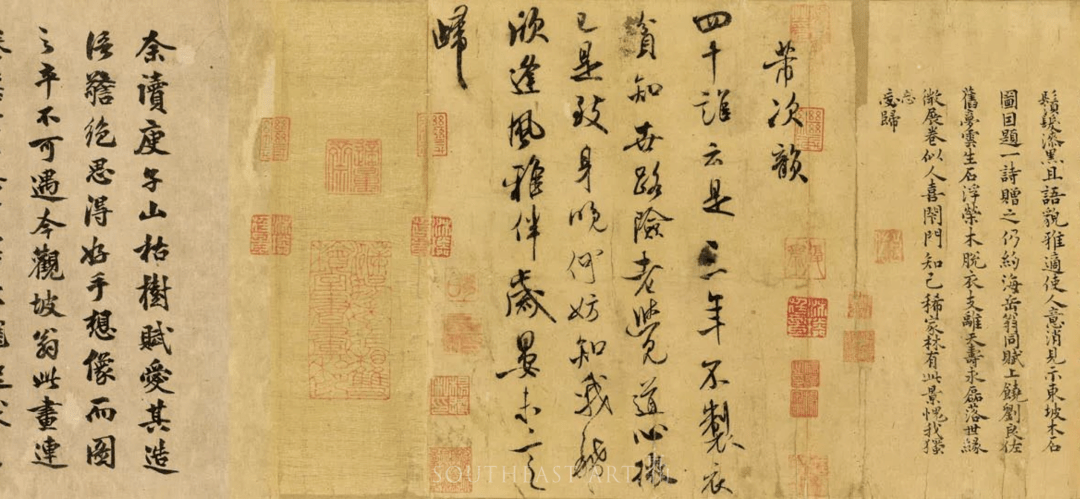 鬚髮漆黑且語貌雅適使人意消見示東坡木石
圖因題一詩贈之仍約海岳翁同賦上饒劉良佐
舊夢雲生石浮榮木脫衣支離天壽永磊落世緣
微展卷似人喜閉門知己稀家林有此景愧我獨
忘歸
芾次韻
四十誰云是三年不製衣
貧知世路險老覺道心微
已是致身晚何妨知我稀
欣逢風雅伴歲晏未言
歸
余讀庾子山枯樹賦愛其造
語警絕思得好手想像而圖
之卒不可遇今觀坡翁此畫連
SOUTHEAST ART